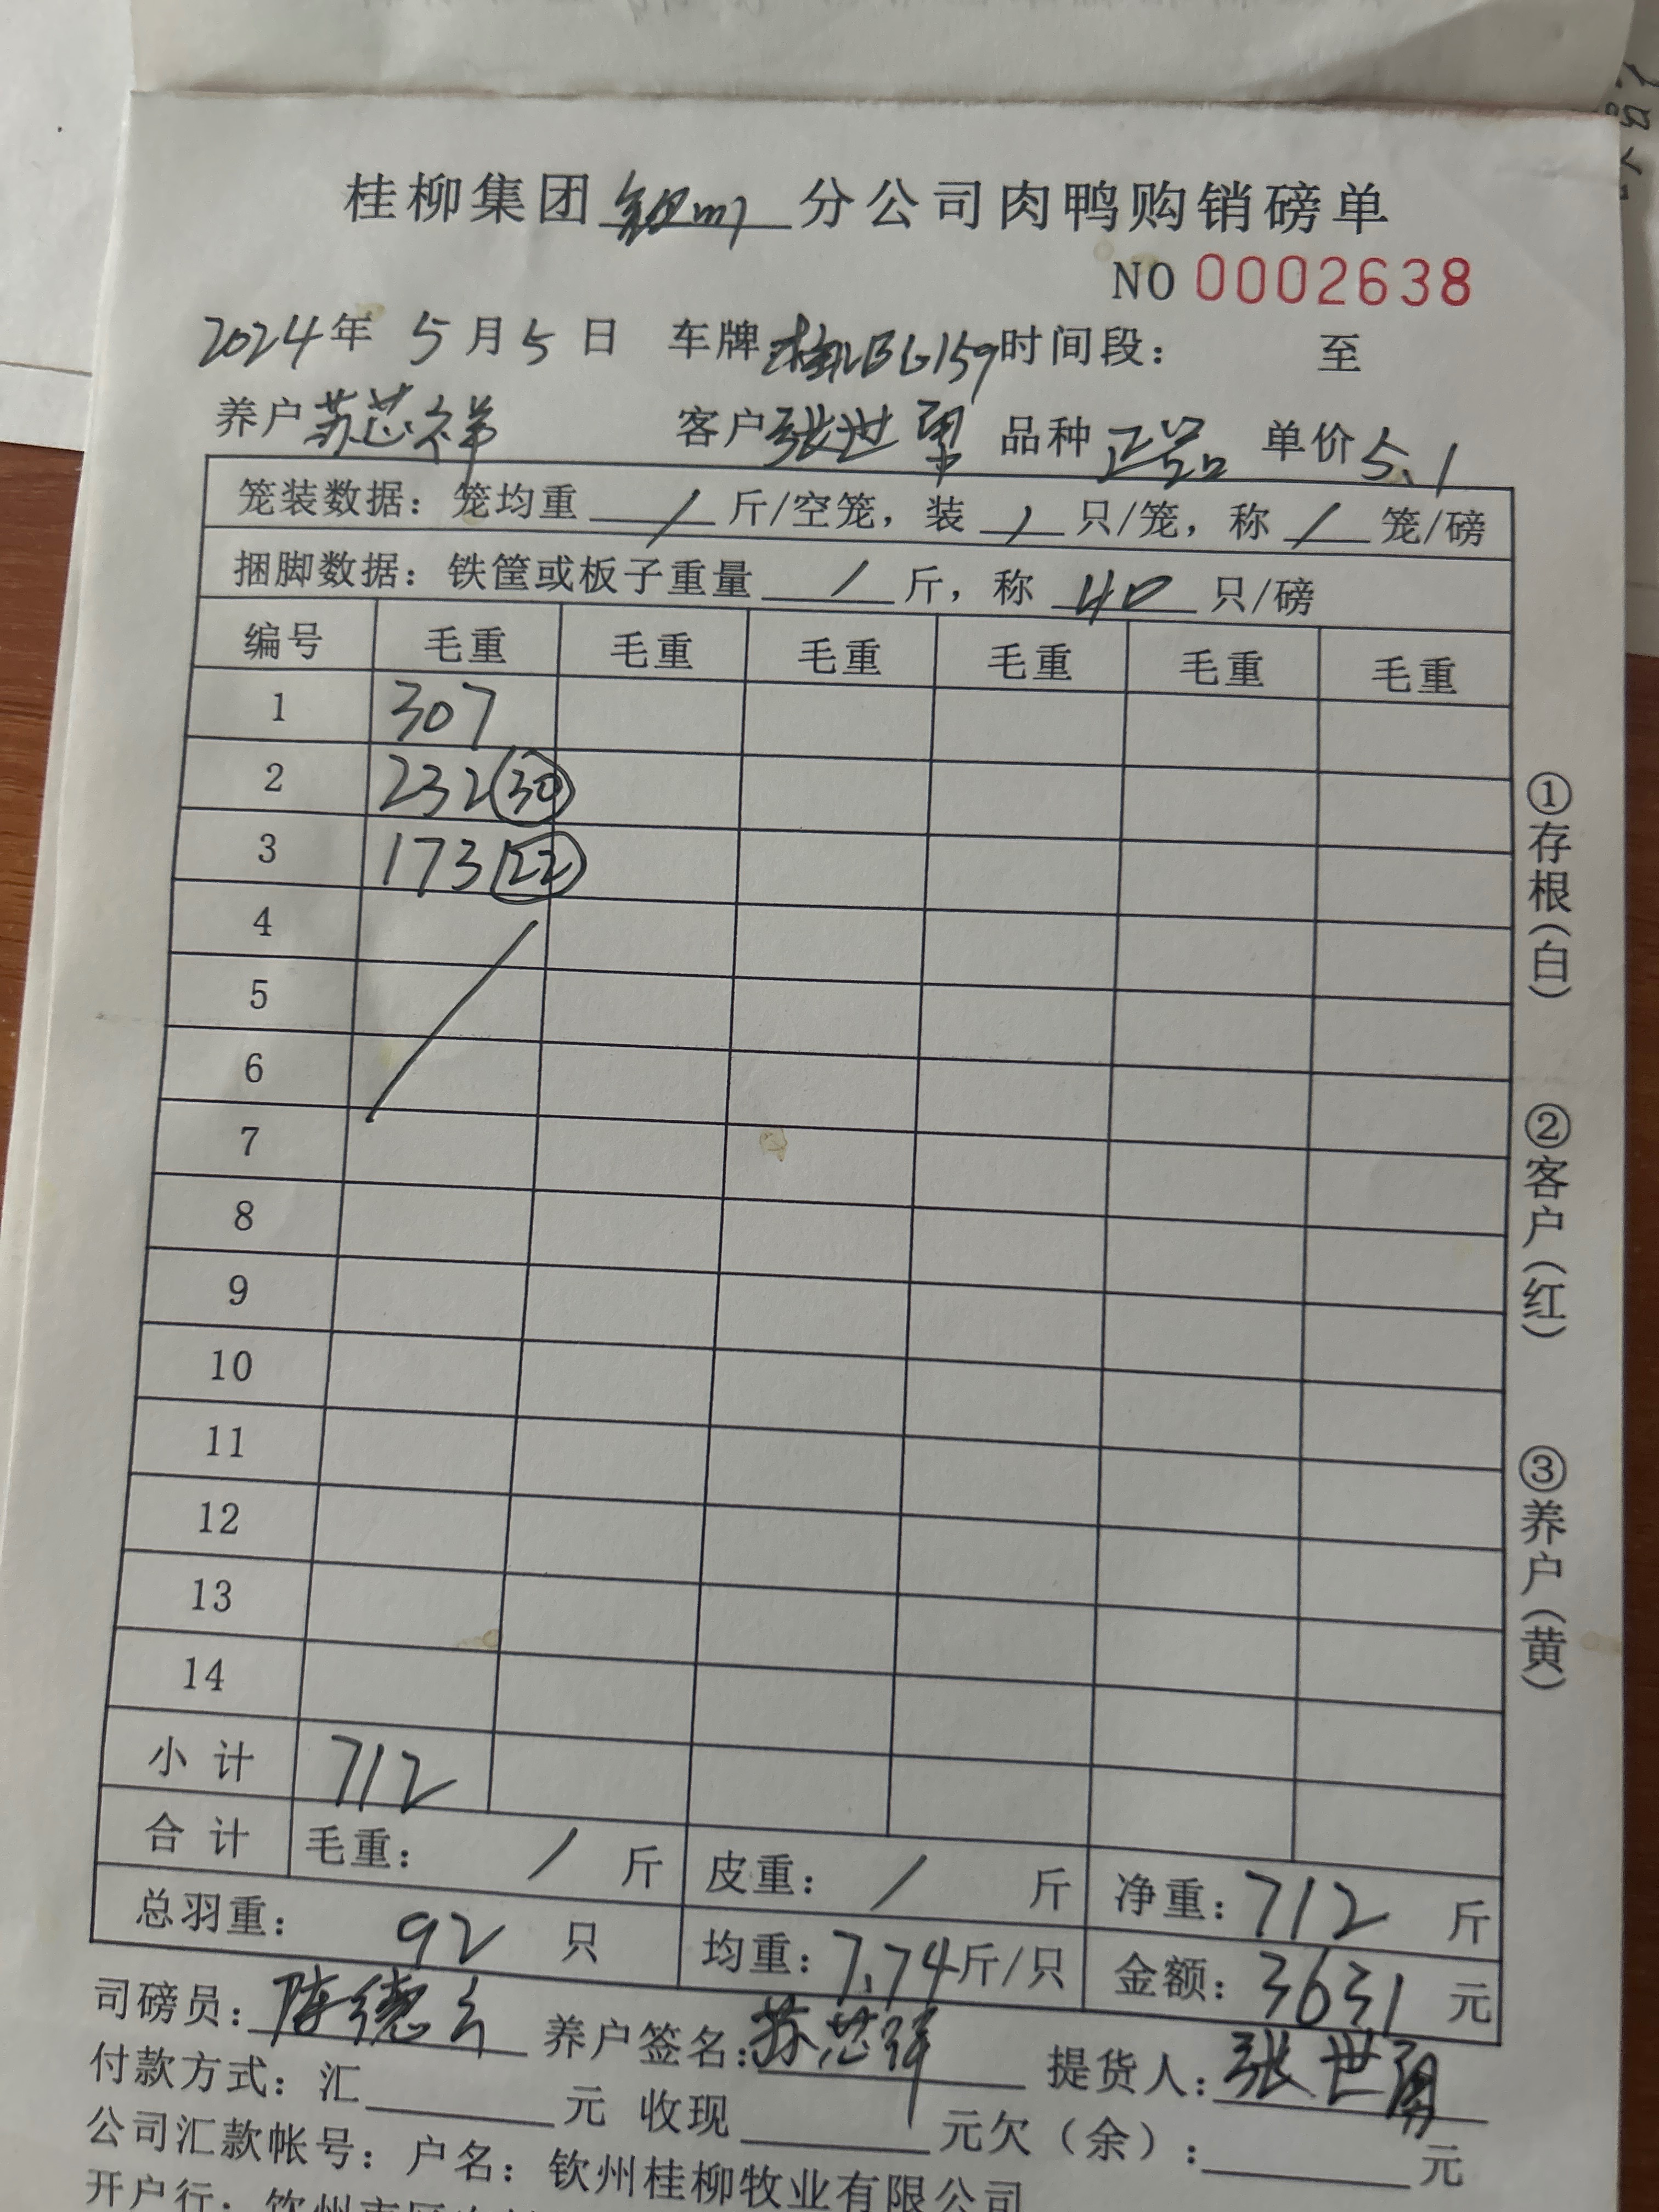 桂柳集团钦州分公司肉鸭购销磅单
NO 0002638
2024年 5月5日 车牌 时间段: 至
养户苏芯祥 客户张世 品种正品 单价5.1
笼装数据: 笼均重 / 斤/空笼, 装 / 只/笼, 称 / 笼/磅
捆脚数据: 铁筐或板子重量 / 斤, 称 40 只/磅
编号 毛重 毛重 毛重 毛重 毛重 毛重
1 307
2 232(30)
3 173(22)
4
5
6
7
8
9
10
11
12
13
14
小计 712
合计 毛重: / 斤 皮重: / 斤 净重: 712 斤
总羽重: 92 只 均重: 7.74斤/只 金额: 3631 元
司磅员: 陈德 养户签名: 苏芯祥 提货人: 张世
付款方式: 汇 元 收现 元欠(余): 元
公司汇款帐号: 户名: 钦州桂柳牧业有限公司
开户行: 钦州市
①存根(白)
②客户(红)
③养户(黄)